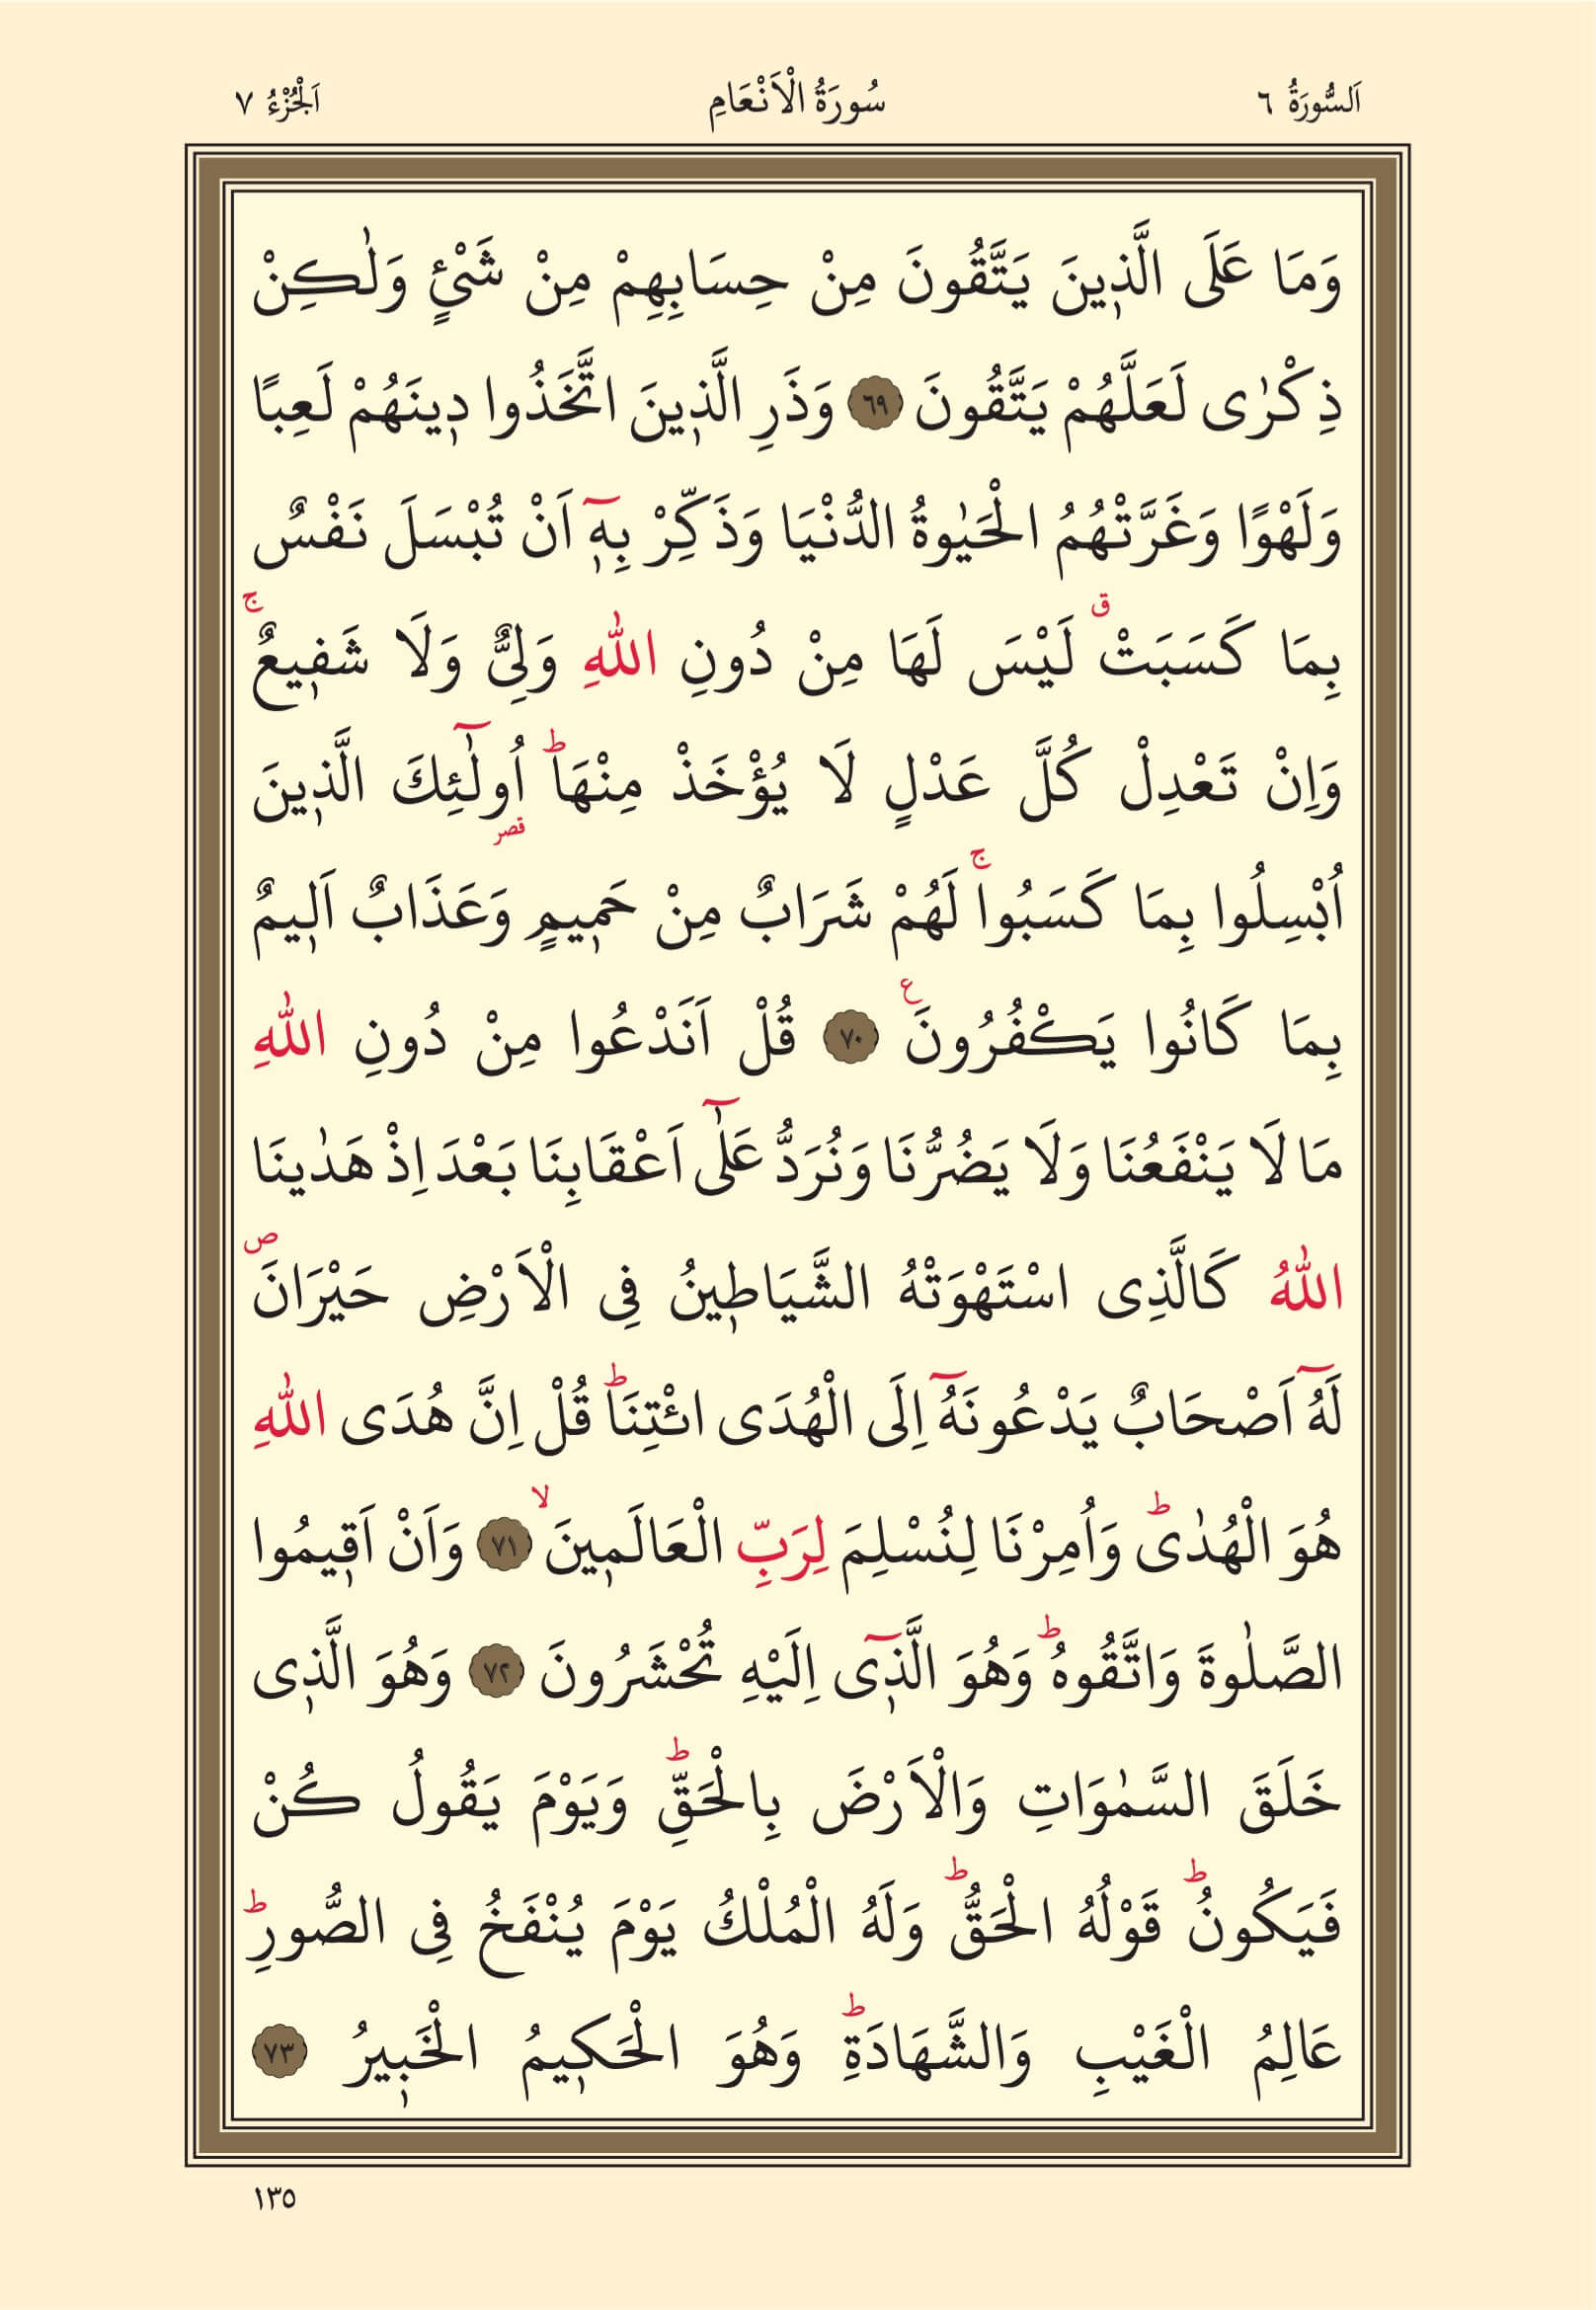 اَلسُّورَةُ ٦ سُورَةُ الْاَنْعَامِ اَلْجُزْءُ ٧
وَمَا عَلَى الَّذ۪ينَ يَتَّقُونَ مِنْ حِسَابِهِمْ مِنْ شَيْءٍ وَلٰكِنْ
ذِكْرٰى لَعَلَّهُمْ يَتَّقُونَ ٦٩ وَذَرِ الَّذ۪ينَ اتَّخَذُوا د۪ينَهُمْ لَعِبًا
وَلَهْوًا وَغَرَّتْهُمُ الْحَيٰوةُ الدُّنْيَا وَذَكِّرْ بِه۪ٓ اَنْ تُبْسَلَ نَفْسٌ
بِمَا كَسَبَتْ ق لَيْسَ لَهَا مِنْ دُونِ اللّٰهِ وَلِيٌّ وَلَا شَف۪يعٌ ۚ
وَاِنْ تَعْدِلْ كُلَّ عَدْلٍ لَا يُؤْخَذْ مِنْهَا ط اُو۬لٰٓئِكَ الَّذ۪ينَ
قصر
اُبْسِلُوا بِمَا كَسَبُوا ۚ لَهُمْ شَرَابٌ مِنْ حَم۪يمٍ وَعَذَابٌ اَل۪يمٌ
بِمَا كَانُوا يَكْفُرُونَ ع ٧٠ قُلْ اَنَدْعُوا مِنْ دُونِ اللّٰهِ
مَا لَا يَنْفَعُنَا وَلَا يَضُرُّنَا وَنُرَدُّ عَلٰٓى اَعْقَابِنَا بَعْدَ اِذْ هَدٰينَا
اللّٰهُ كَالَّذِى اسْتَهْوَتْهُ الشَّيَاط۪ينُ فِى الْاَرْضِ حَيْرَانَ ص
لَهُٓ اَصْحَابٌ يَدْعُونَهُٓ اِلَى الْهُدَى ائْتِنَا ط قُلْ اِنَّ هُدَى اللّٰهِ
هُوَ الْهُدٰى ط وَاُمِرْنَا لِنُسْلِمَ لِرَبِّ الْعَالَم۪ينَ ۙ ٧١ وَاَنْ اَق۪يمُوا
الصَّلٰوةَ وَاتَّقُوهُ ط وَهُوَ الَّذ۪ٓى اِلَيْهِ تُحْشَرُونَ ٧٢ وَهُوَ الَّذ۪ى
خَلَقَ السَّمٰوَاتِ وَالْاَرْضَ بِالْحَقِّ ط وَيَوْمَ يَقُولُ كُنْ
فَيَكُونُ ط قَوْلُهُ الْحَقُّ ط وَلَهُ الْمُلْكُ يَوْمَ يُنْفَخُ فِى الصُّورِ ط
عَالِمُ الْغَيْبِ وَالشَّهَادَةِ ط وَهُوَ الْحَك۪يمُ الْخَب۪يرُ ٧٣
١٣٥